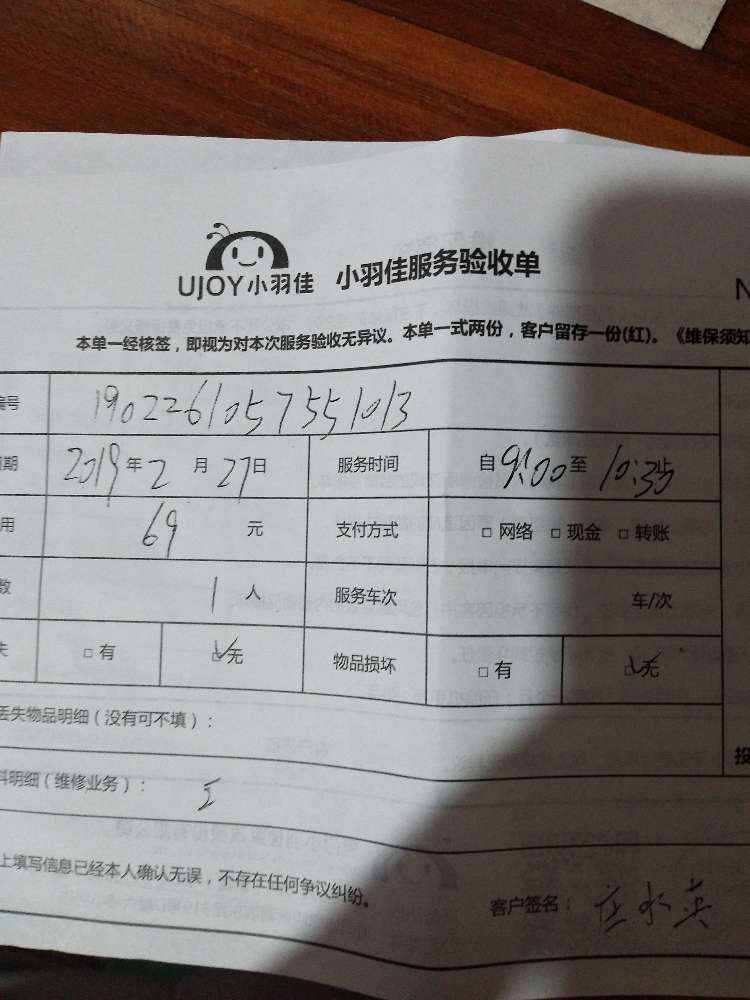 UJOY小羽佳 小羽佳服务验收单
N
本单一经核签，即视为对本次服务验收无异议。本单一式两份，客户留存一份(红)。《维保须知
编号 1902261057551013
日期 2019年2月27日 服务时间 自9:00至10:35止
用 69 元 支付方式 □网络 □现金 □转账
数 1人 服务车次 车/次
失 □有 ☑无 物品损坏 □有 ☑无
丢失物品明细（没有可不填）：
投
料明细（维修业务）：
上填写信息已经本人确认无误，不存在任何争议纠纷。
客户签名：庄水英